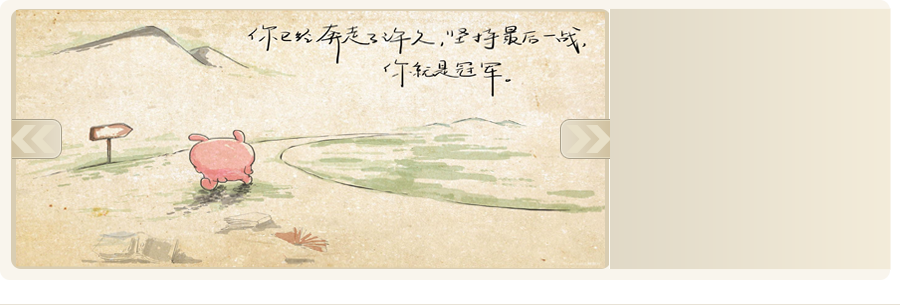 你已经奔走了许久，坚持最后一战，
你就是冠军。